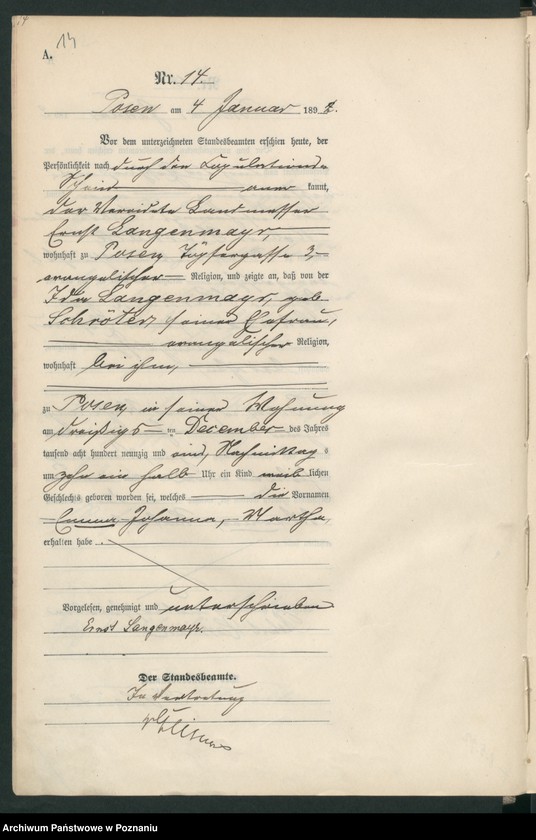 14
A.
Nr. 14.
Posen am 4 Januar 1892.
Vor dem unterzeichneten Standesbeamten erschien heute, der
Persönlichkeit nach durch den Copulations-
Schein aner kannt,
der Vereidete Landmesser
Ernst Langenmayr,
wohnhaft zu Posen Töpfergasse 3,
evangelischer Religion, und zeigte an, daß von der
Ida Langenmayr, geb.
Schröter, seiner Ehefrau,
evangelischer Religion,
wohnhaft bei ihm,
zu Posen in seiner Wohnung
am dreißigs ten December des Jahres
tausend acht hundert neunzig und eins, Nachmittag s
um zehn ein halb Uhr ein Kind weib lichen
Geschlechts geboren worden sei, welches die Vornamen
Emma Johanna, Martha
erhalten habe.
Vorgelesen, genehmigt und unterschrieben
Ernst Langenmayr.
Der Standesbeamte.
In Vertretung
Archiwum Państwowe w Poznaniu